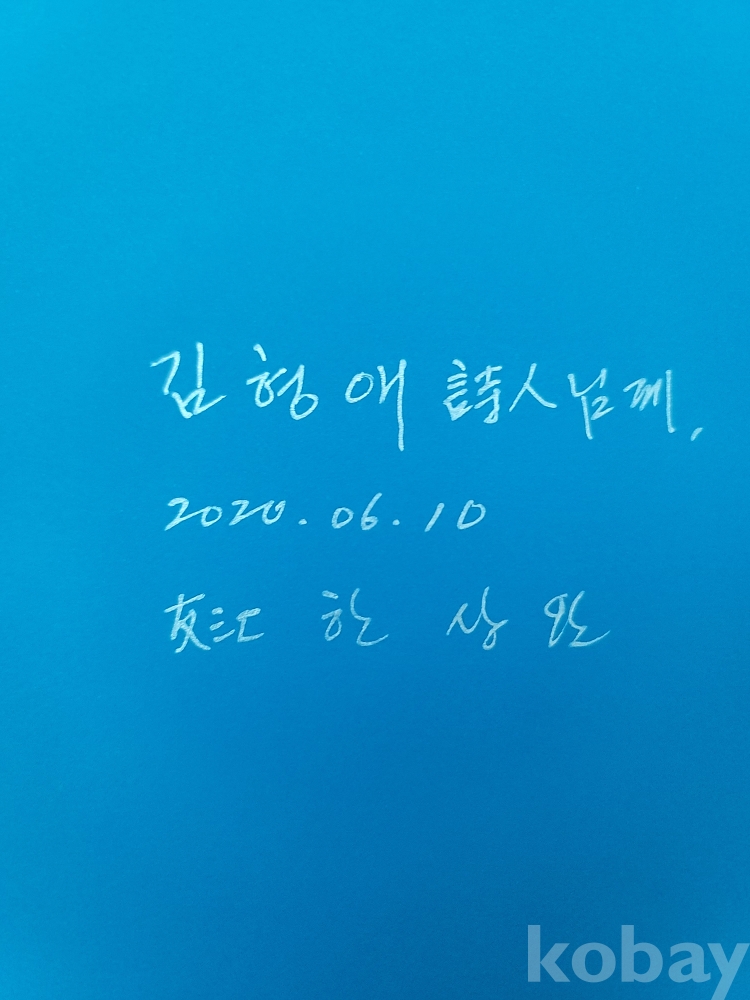 김형애 詩人님께,
2020. 06. 10
友江 한상완
kobay